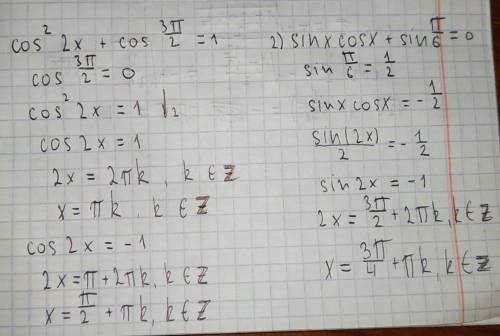 cos² 2x + cos 3π/2 = 1
cos 3π/2 = 0
cos² 2x = 1
cos 2x = 1
2x = 2πk, k ∈ Z
x = πk, k ∈ Z
cos 2x = -1
2x = π + 2πk, k ∈ Z
x = π/2 + πk, k ∈ Z
2) sinx cosx + sin π/6 = 0
sin π/6 = 1/2
sinx cosx = -1/2
sin(2x)/2 = -1/2
sin 2x = -1
2x = 3π/2 + 2πk, k ∈ Z
x = 3π/4 + πk, k ∈ Z